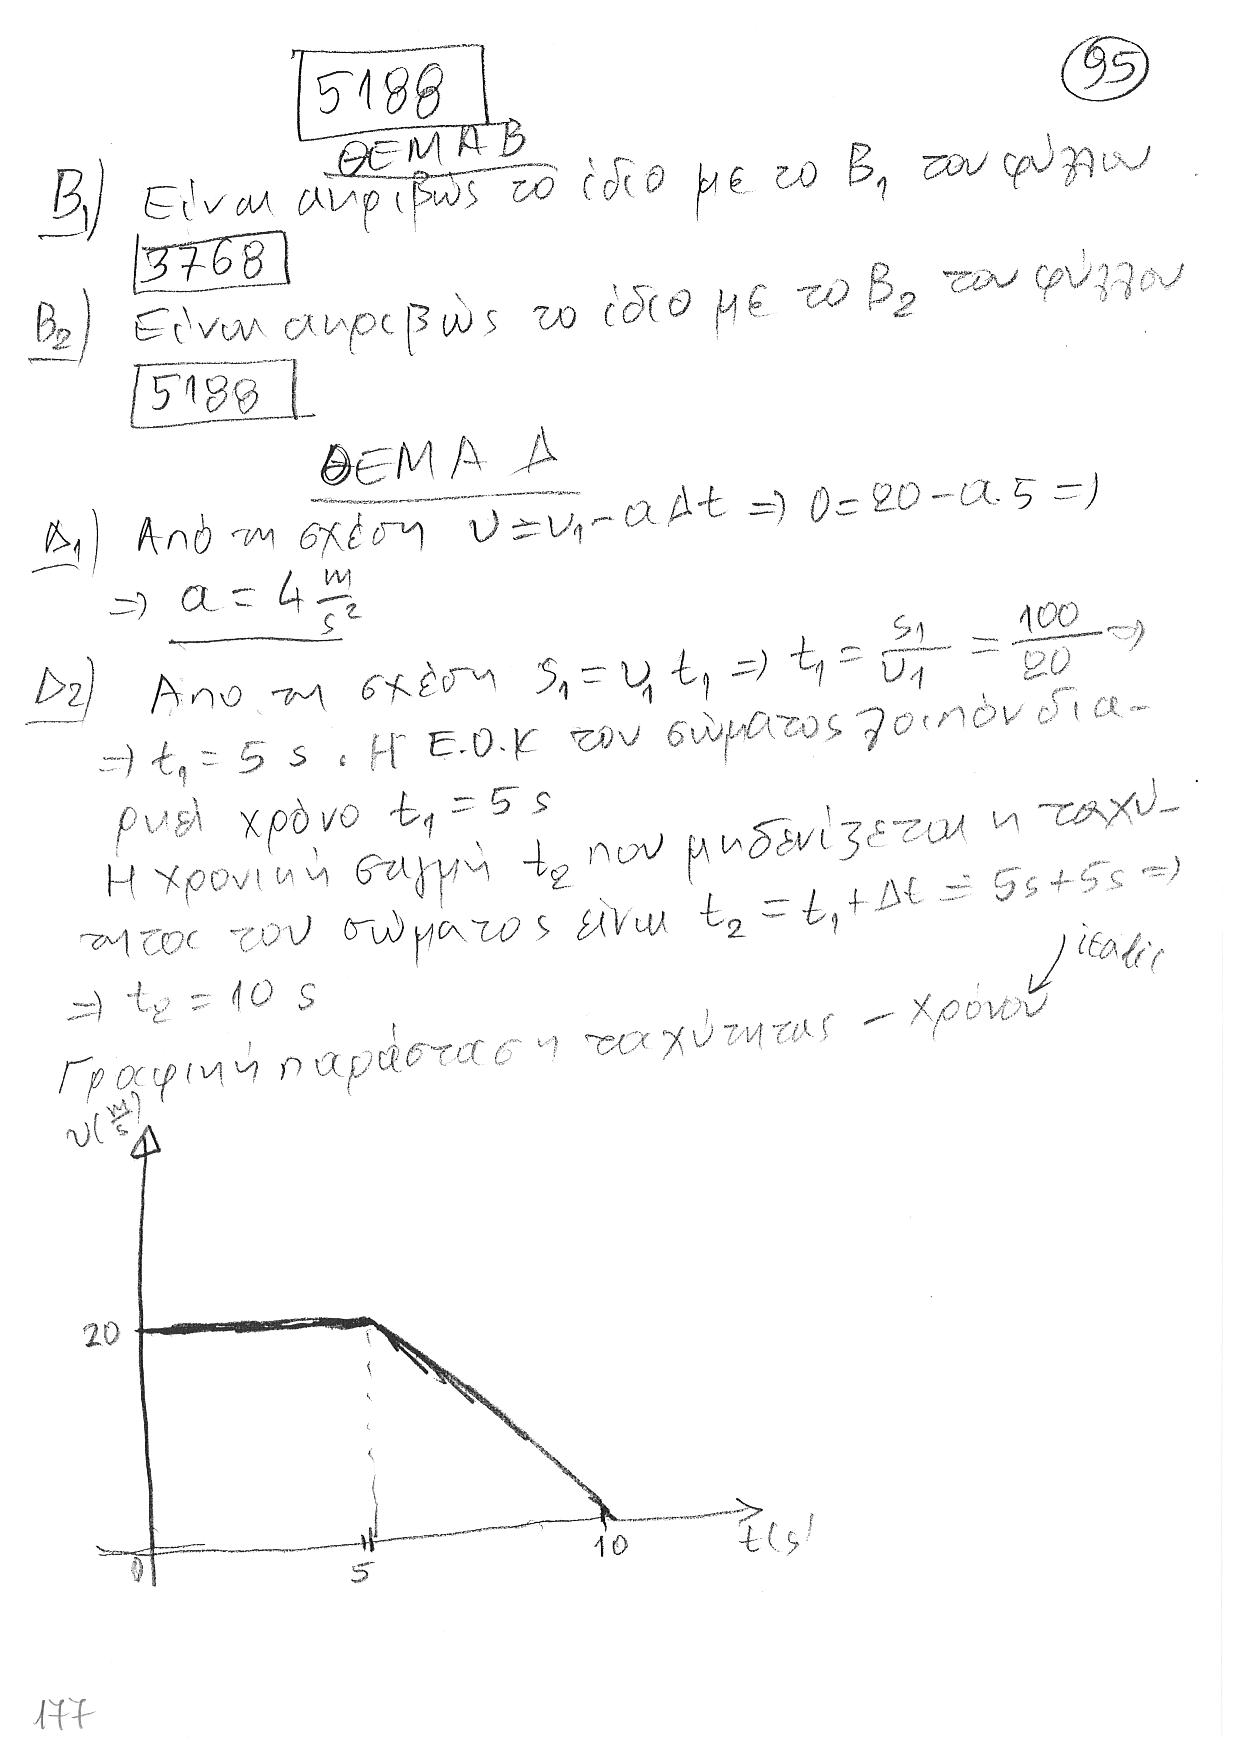 95
5188
ΘΕΜΑ Β
Β₁) Είναι ακριβώς το ίδιο με το Β₁ του φύλλου
3768
Β₂) Είναι ακριβώς το ίδιο με το Β₂ του φύλλου
5188
ΘΕΜΑ Δ
Δ₁) Από τη σχέση υ=υ₁-aΔt ⇒ 0=20-a.5 ⇒
⇒ a = 4 m/s²
Δ₂) Από τη σχέση s₁ = υ₁ t₁ ⇒ t₁ = s₁/υ₁ = 100/20 ⇒
⇒ t₁ = 5 s . Η Ε.Ο.Κ του σώματος λοιπόν δια-
ρκεί χρόνο t₁ = 5 s
Η χρονική στιγμή t₂ που μηδενίζεται η ταχύ-
τητος του σώματος είναι t₂ = t₁ + Δt = 5s+5s ⇒
⇒ t₂ = 10 s
italic
Γραφική παράσταση ταχύτητας - χρόνου
υ(m/s)
20
0
5
10
t(s)
177